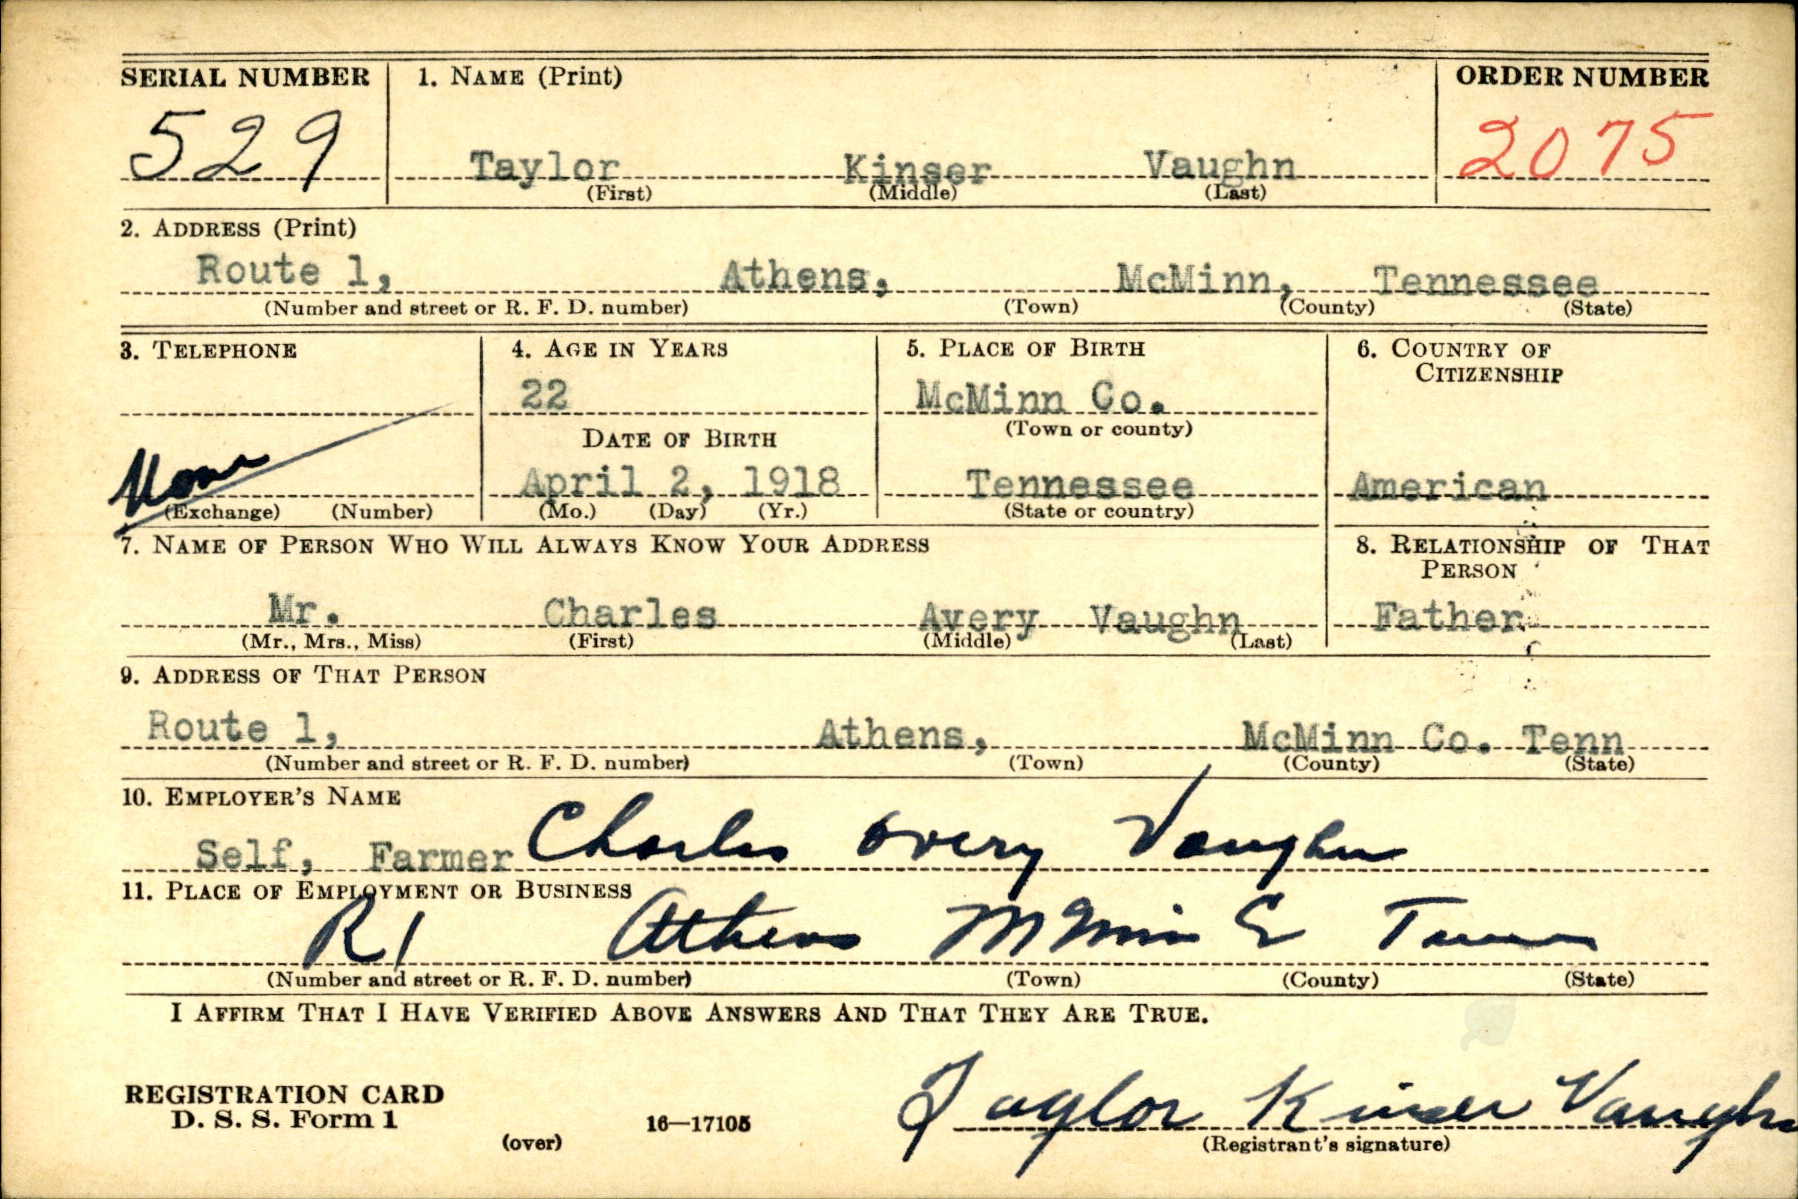 SERIAL NUMBER 1. NAME (Print) ORDER NUMBER
529 Taylor Kinser Vaughn 2075
(First) (Middle) (Last)
2. ADDRESS (Print)
Route 1, Athens, McMinn, Tennessee
(Number and street or R. F. D. number) (Town) (County) (State)
3. TELEPHONE 4. AGE IN YEARS 5. PLACE OF BIRTH 6. COUNTRY OF
CITIZENSHIP
22 McMinn Co.
(Town or county)
DATE OF BIRTH
None April 2, 1918 Tennessee American
(Exchange) (Number) (Mo.) (Day) (Yr.) (State or country)
7. NAME OF PERSON WHO WILL ALWAYS KNOW YOUR ADDRESS 8. RELATIONSHIP OF THAT
PERSON
Mr. Charles Avery Vaughn Father
(Mr., Mrs., Miss) (First) (Middle) (Last)
9. ADDRESS OF THAT PERSON
Route 1, Athens, McMinn Co. Tenn
(Number and street or R. F. D. number) (Town) (County) (State)
10. EMPLOYER'S NAME
Self, Farmer Charles overy Vaughn
11. PLACE OF EMPLOYMENT OR BUSINESS
R 1 Athens McMinn Co Tenn
(Number and street or R. F. D. number) (Town) (County) (State)
I AFFIRM THAT I HAVE VERIFIED ABOVE ANSWERS AND THAT THEY ARE TRUE.
REGISTRATION CARD
D. S. S. Form 1 16—17105 Taylor Kinser Vaughn
(over) (Registrant's signature)